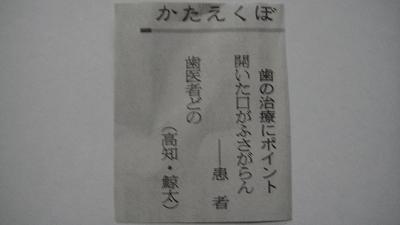 かたえくぼ
歯の治療にポイント
開いた口がふさがらん
――患者
歯医者どの
（高知・鯨太）